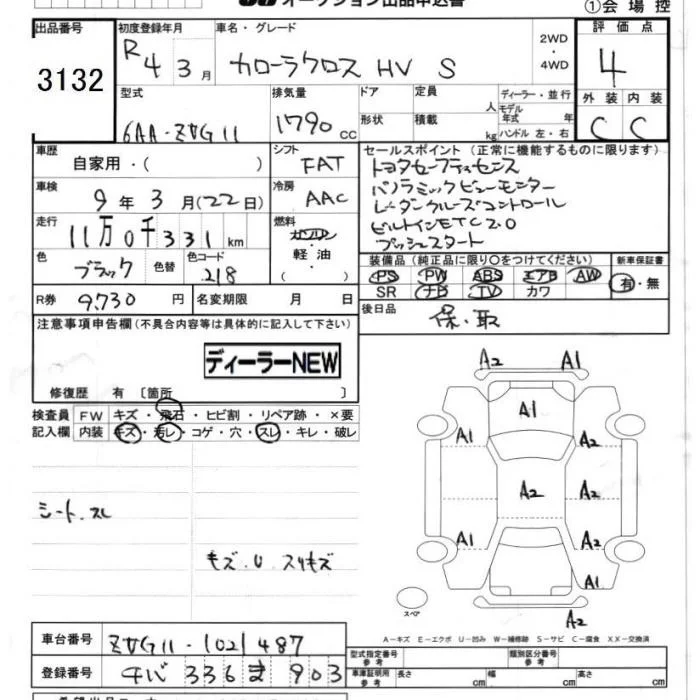 オークション出品申込書
①会場控
出品番号
3132
初度登録年月
R4 3月
車名・グレード
カローラクロス HV S
2WD
・
4WD
評価点
4
外装 内装
C C
型式
6AA-ZVG11
排気量
1790 CC
ドア
形状
定員
人
積載
kg
ディーラー・並行
モデル年式 年
ハンドル 左・右
車歴
自家用・( )
シフト
FAT
車検
9年3月(22日)
冷房
AAC
走行
11万0千331km
燃料
ガソリン
軽油
( )
色
ブラック
色替
色コード
218
R券 9730 円
名変期限 月 日
セールスポイント(正常に機能するものに限ります)
トヨタセーフティセンス
パノラミックビューモニター
レーダークルーズコントロール
ビルトインETC2.0
プッシュスタート
装備品(純正品に限り○をつけてください)
PS PW ABS エアB AW
SR ナビ TV カワ
新車保証書
有・無
後日品
保・取
注意事項申告欄(不具合内容等は具体的に記入して下さい)
ディーラーNEW
修復歴 有〔箇所 〕
検査員記入欄
FW キズ・飛石・ヒビ割・リペア跡・×要
内装 キズ・汚レ・コゲ・穴・スレ・キレ・破レ
シート、スレ
キズ、U スリキズ
A2 A1
A1
A1 A2
A2 A2
A1 A2
A1
A2
スペア
A-キズ E-エクボ U-凹み W-補修跡 S-サビ C-腐食 XX-交換済
車台番号 ZVG11-1021487
登録番号 チバ 336 ま 903
型式指定番号
参考
類別区分番号
参考
車庫証明用
参考
長さ cm 幅 cm 高さ cm